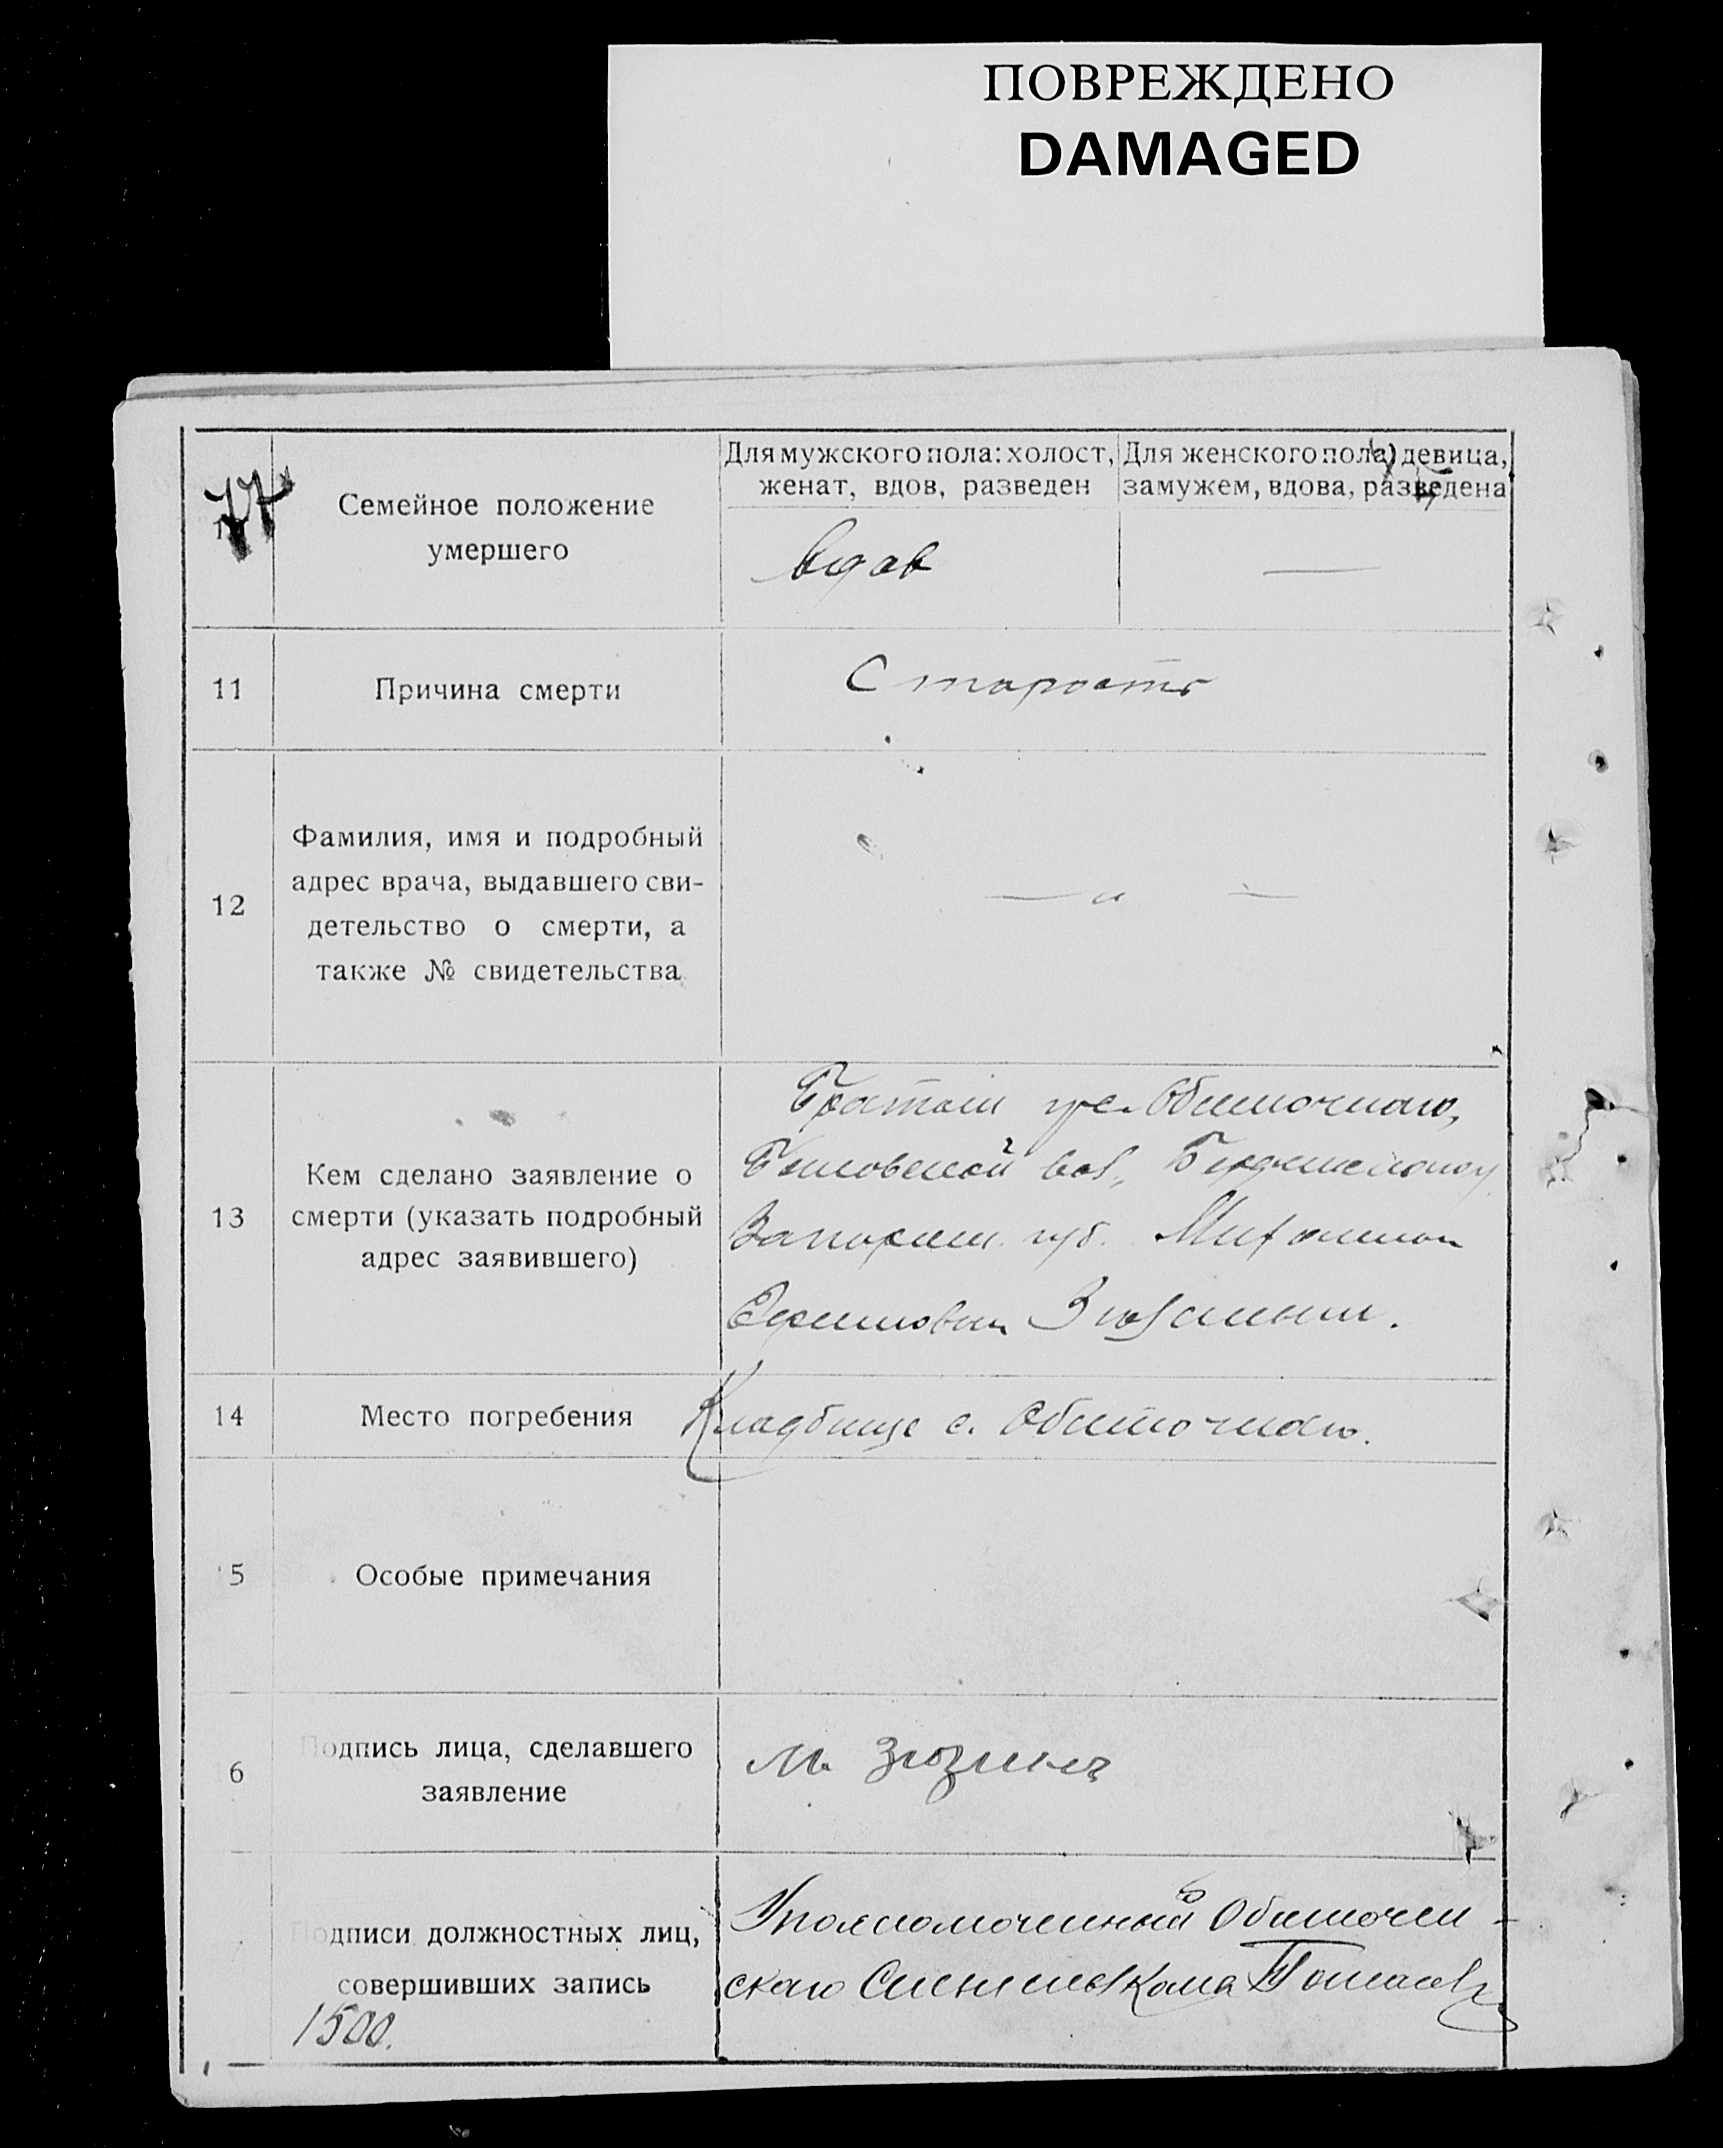 ПОВРЕЖДЕНО
DAMAGED
77
Семейное положение
умершего
Для мужского пола: холост,
женат, вдов, разведен
Для женского пола) девица,
замужем, вдова, разведена
вдов
—
11
Причина смерти
Старость
12
Фамилия, имя и подробный
адрес врача, выдавшего сви-
детельство о смерти, а
также № свидетельства
— " —
13
Кем сделано заявление о
смерти (указать подробный
адрес заявившего)
Обиточнаго,
вол,
Запорож. губ.
Зюзиным.
14
Место погребения
Кладбище с. Обиточнаго.
5
Особые примечания
6
Подпись лица, сделавшего
заявление
М. Зюзинъ
Подписи должностных лиц,
совершивших запись
Уполномоченный Обиточен-
скаго
1500.